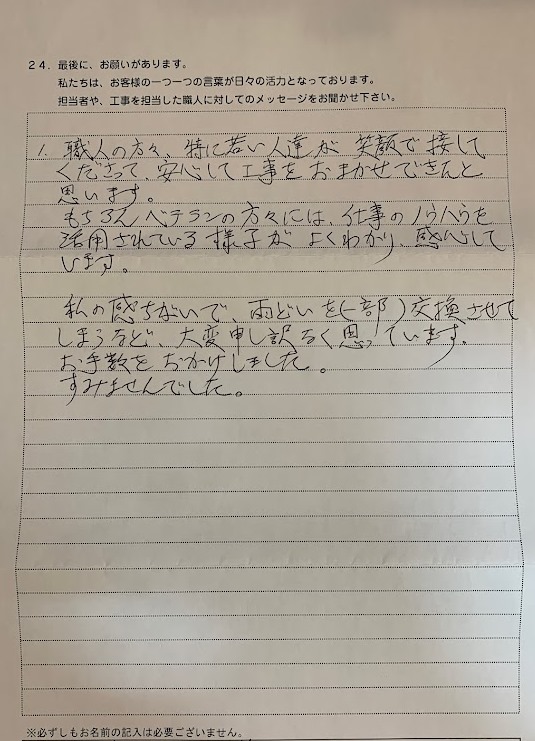 24. 最後に、お願いがあります。
私たちは、お客様の一つ一つの言葉が日々の活力となっております。
担当者や、工事を担当した職人に対してのメッセージをお聞かせ下さい。
1. 職人の方々、特に若い人達が笑顔で接して
くださって、安心して工事をおまかせできたと
思います。
もちろんベテランの方々には、仕事のノウハウを
活用されている様子がよくわかり、感心して
います。
私の感ちがいで、雨どいを(一部)交換させて
しまうなど、大変申し訳なく思っています。
お手数をおかけしました。
すみませんでした。
※必ずしもお名前の記入は必要ございません。